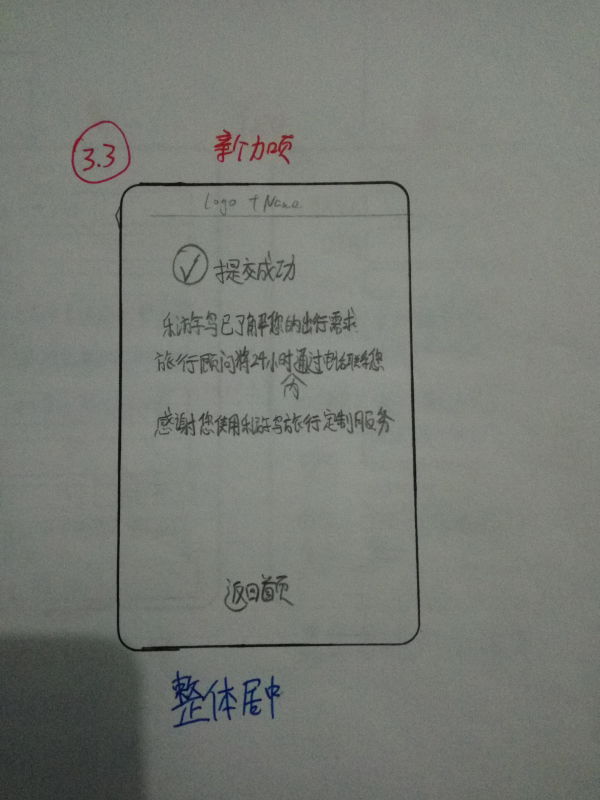 3.3
新加项
Logo + Name
提交成功
乐游鸟已了解您的出行需求
旅行顾问将24小时内通过电话联系您
感谢您使用乐游鸟旅行定制服务
返回首页
整体居中